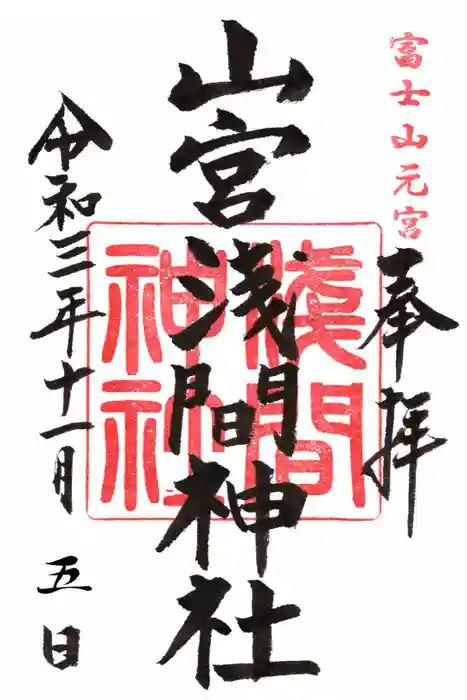 富士山元宮
奉拝
山宮浅間神社
淺間神社
令和三年十一月五日